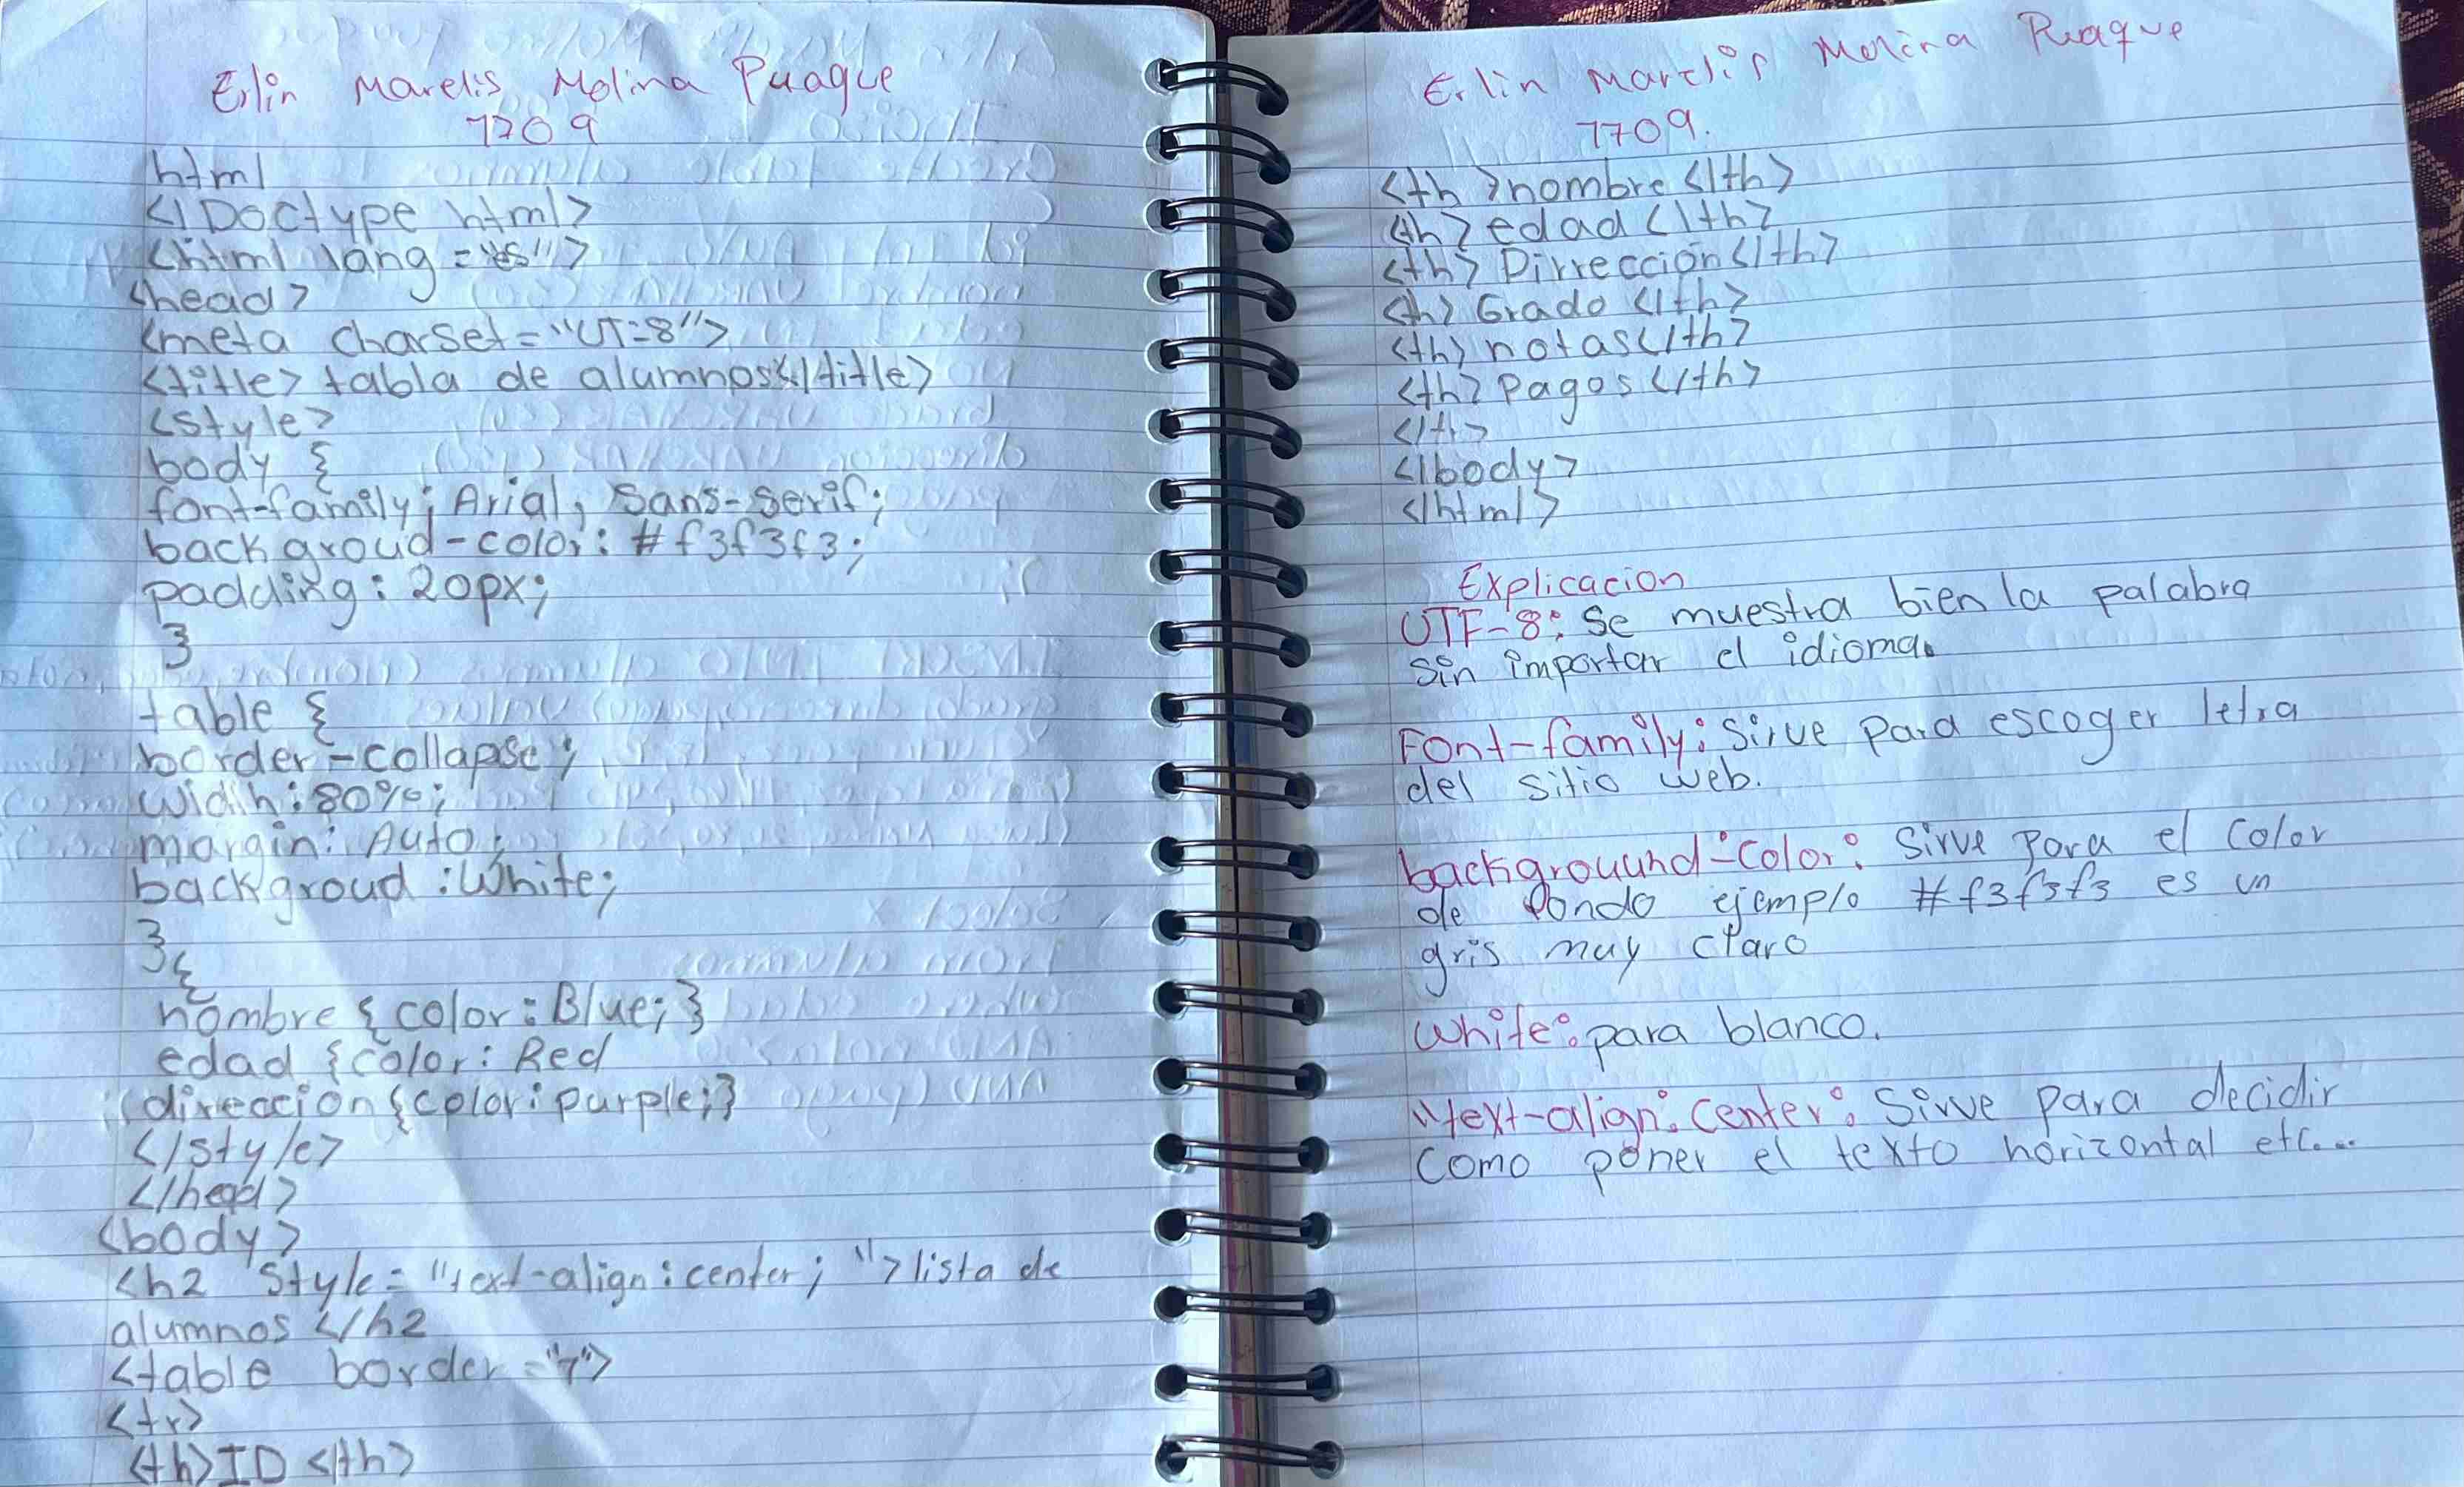 Erlin Marelis Molina Puaque
7709
html
<!Doctype html>
<html lang="es">
<head>
<meta charset="UT=8">
<title> tabla de alumnos</title>
<style>
body {
font-family; Arial, Sans-Serif;
backgroud-color: #f3f3f3;
padding: 20px;
}
table {
border-collapse;
Width: 80%;
margin: Auto;
backgroud: White;
}
{
nombre {color: Blue;}
edad {color: Red
direccion {color: purple;}
</style>
</head>
<body>
<h2 Style= "text-align: center; ">lista de
alumnos </h2
<table border="1">
<tr>
<th>ID</th>
Erlin Marelis Molina Puaque
7709.
<th>nombre</th>
<th>edad</th>
<th>Dirreccion</th>
<th>Grado</th>
<th>notas</th>
<th>Pagos</th>
</tr>
</body>
</html>
Explicacion
UTF-8: Se muestra bien la palabra
Sin importar el idioma.
Font-family: Sirve Para escoger letra
del sitio web.
backgrouund-Color: Sirve Para el Color
de Fondo ejemplo #f3f3f3 es un
gris muy claro
White: para blanco.
"text-align: Center: Sirve para decidir
Como poner el texto horizontal etc...